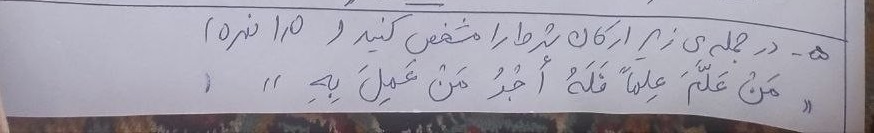 ۵- در جمله ی زیر ارکان شرط را مشخص کنید ( ۱٫۵ نمره )
« مَنْ عَلَّمَ عِلماً فَلَهُ أَجْرُ مَنْ عَمِلَ بِهِ »